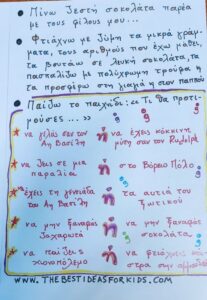 • Πίνω ζεστή σοκολάτα παρέα
με τους φίλους μου...
• Φτιάχνω με ζύμη τα μικρά γράμ-
ματα, τους αριθμούς που έχω μάθει,
τα βουτάω σε λευκή σοκολάτα, τα
πασπαλίζω με πολύχρωμη τρούφα &
τα προσφέρω στη γιαγιά ή στον παππού
• Παίζω το παιχνίδι: "Τι θα προτι-
μούσες...»
να γελάς σαν τον Αη Βασίλη ή να έχεις κόκκινη μύτη σαν τον Rudolph
να ζεις σε μια παραλία ή στο Βόρειο Πόλο
να έχεις τη γενειάδα του Αη Βασίλη ή τα αυτιά του ξωτικού
να μην ξαναφάς ζαχαρωτά ή να μην ξαναφάς σοκολάτα
να παίζεις χιονοπόλεμο ή να φτιάχνεις στην
WWW.THEBESTIDEASFORKIDS.COM